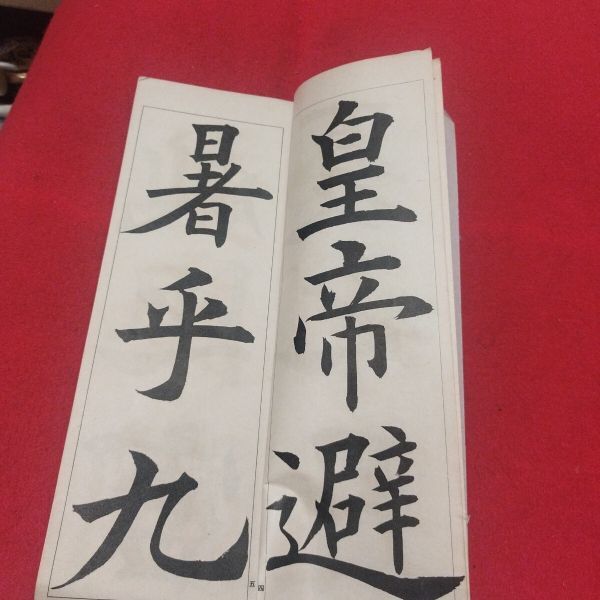 皇帝避
暑乎九
四
五